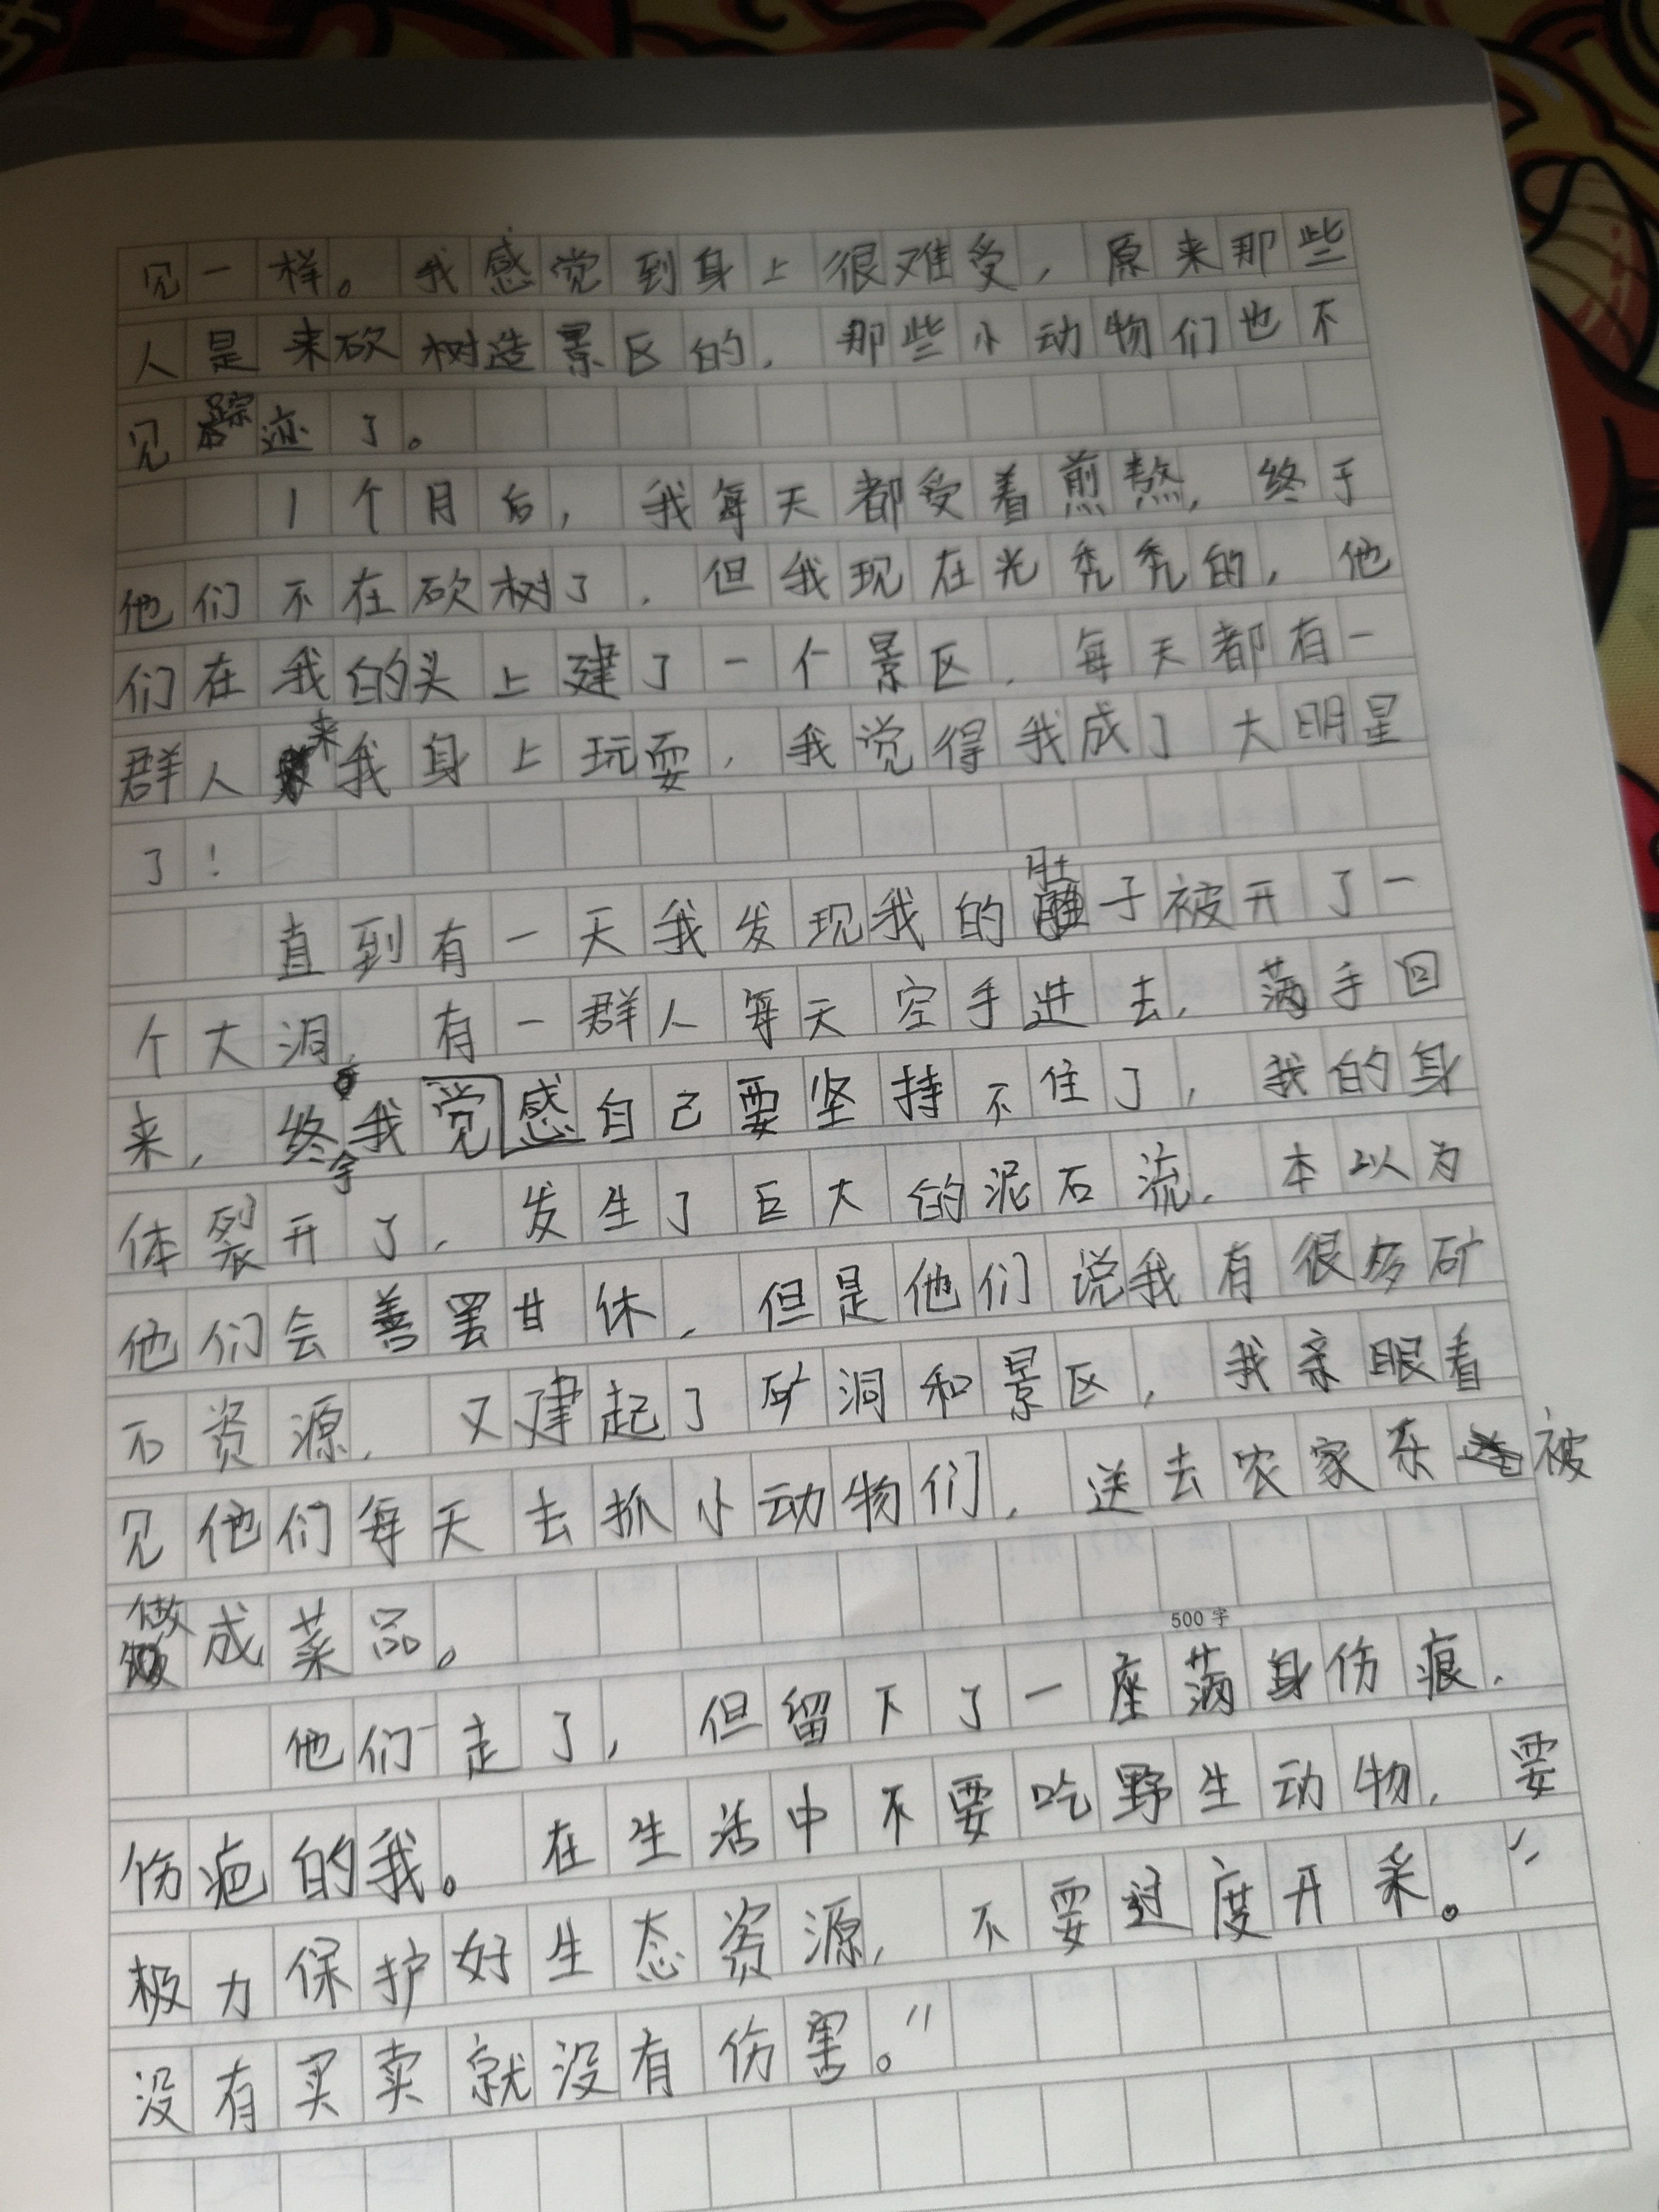 见一样。我感觉到身上很难受，原来那些
人是来砍树造景区的，那些小动物们也不
见踪迹了。
1个月后，我每天都受着煎熬，终于
他们不在砍树了，但我现在光秃秃的，他
们在我的头上建了一个景区，每天都有一
群人来我身上玩耍，我觉得我成了大明星
了！
直到有一天我发现我的肚子被开了一
个大洞，有一群人每天空手进去，满手回
来，终我觉感自己要坚持不住了，我的身
体裂开了，发生了巨大的泥石流，本以为
他们会善罢甘休，但是他们说我有很多矿
石资源，又建起了矿洞和景区，我亲眼看
见他们每天去抓小动物们，送去农家乐被
做成菜品。
500字
他们走了，但留下了一座满身伤痕，
伤疤的我。在生活中不要吃野生动物，要
极力保护好生态资源，不要过度开采。“
没有买卖就没有伤害。”